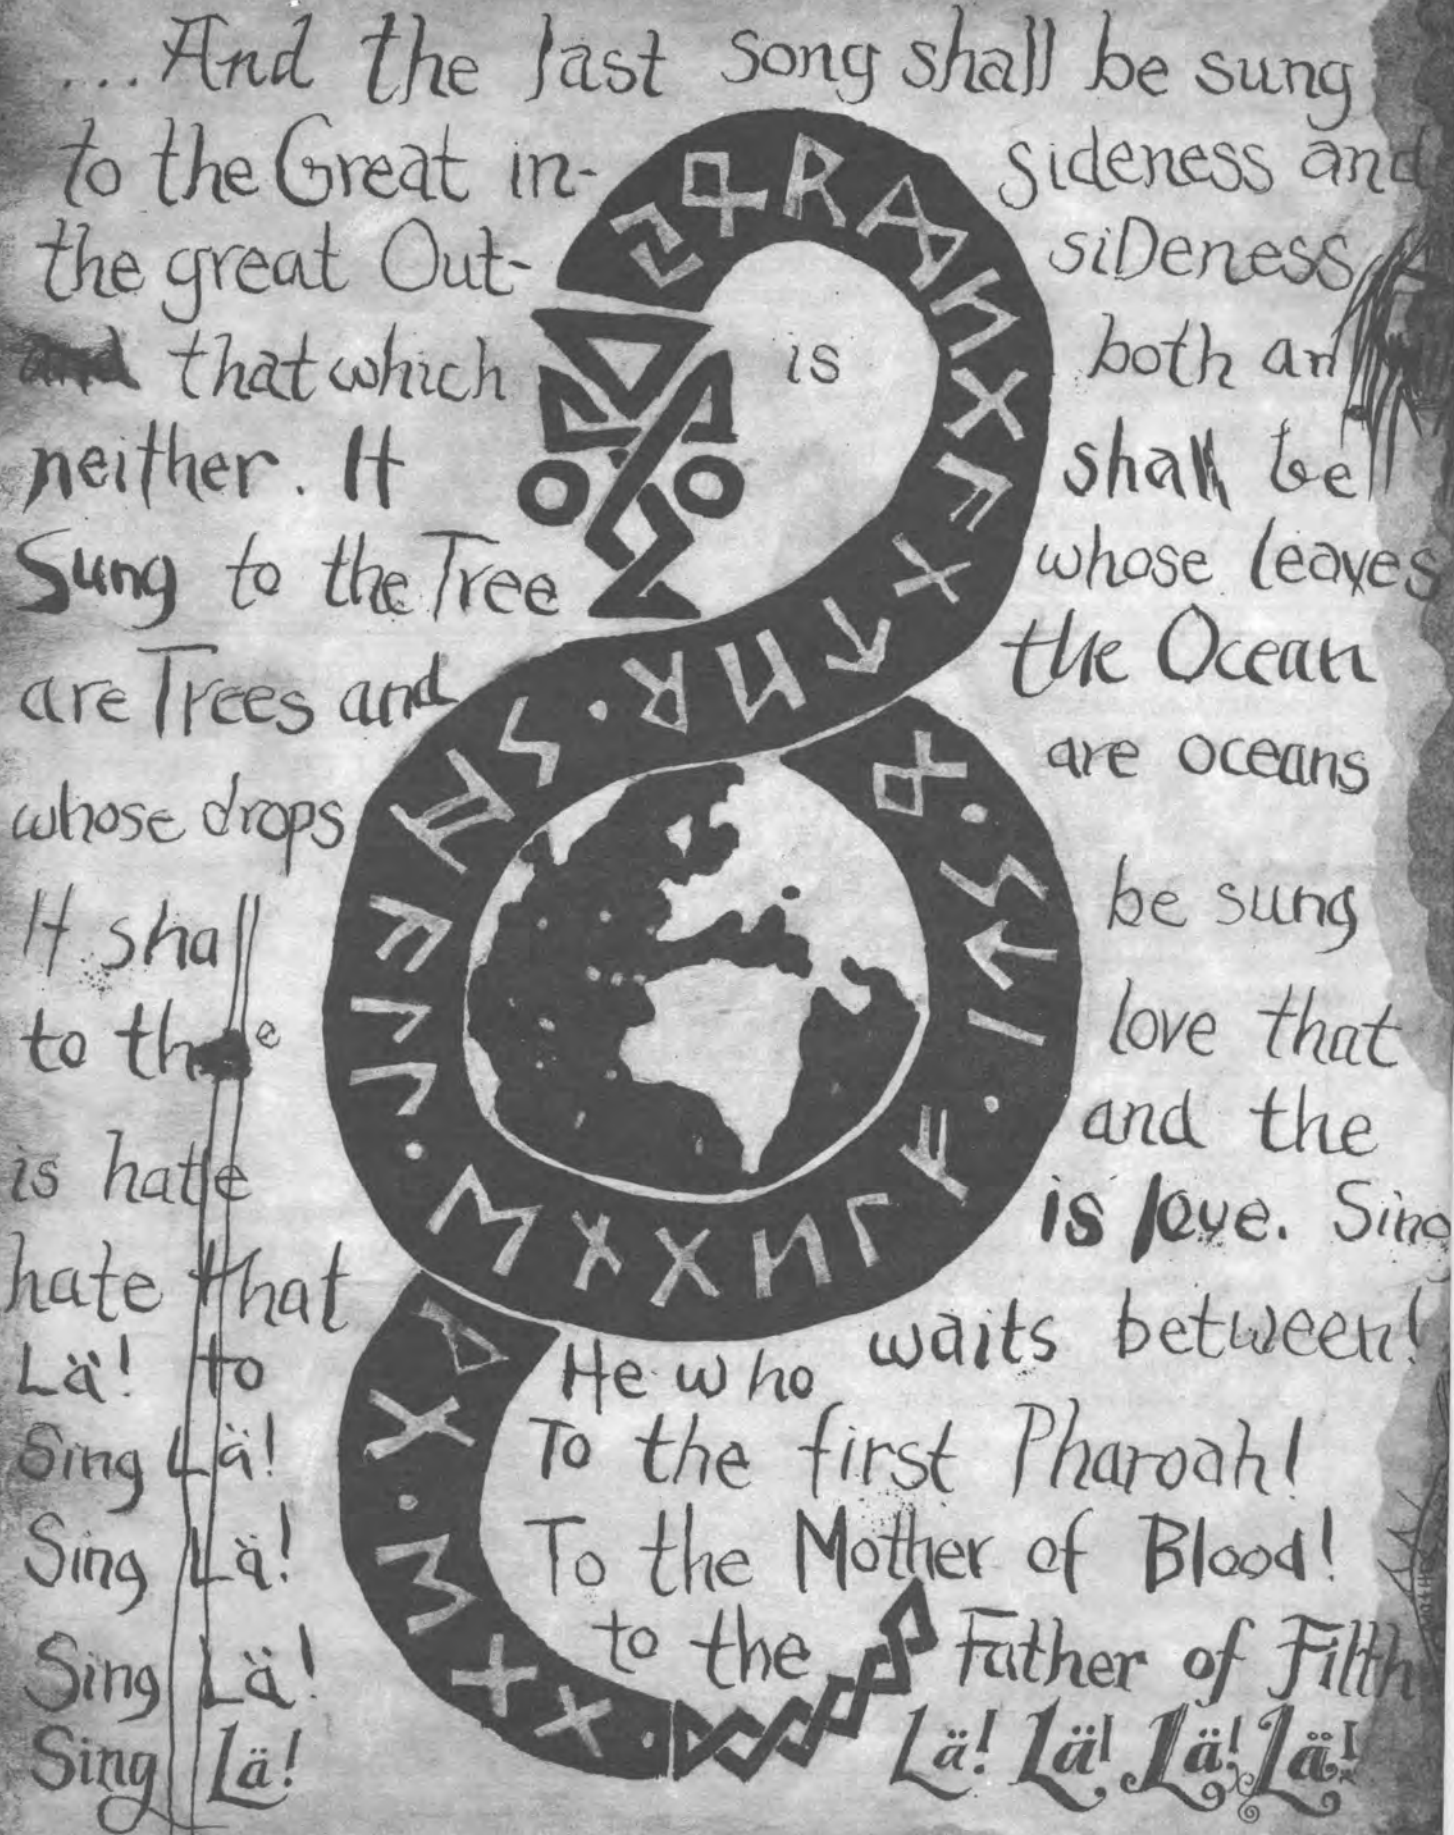 ....And the last song shall be sung
to the Great in- sideness and
the great Out- siDeness
that which is both an
neither. It shall be
Sung to the Tree whose leaves
are Trees and the Ocean
whose drops are oceans
It shall be sung
to the love that
is hate and the
hate that is love. Sing
Lä! to He who waits between!
Sing Lä! To the first Pharoah!
Sing Lä! To the Mother of Blood!
Sing Lä! to the Father of Filth
Sing Lä! Lä! Lä! Lä! Lä!